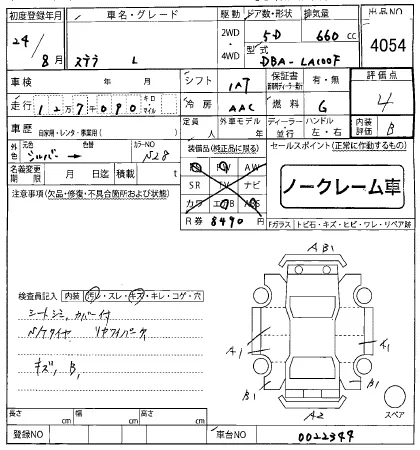 初度登録年月 車名・グレード 駆動 ドア数・形状 排気量 出品NO
24/8月 ステラ L 2WD・4WD 5D 660cc 4054
型式 DBA-LA100F
車検 年 月 シフト IAT 保証書 有・無 評価点
走行 127090 キロ・マイル 冷房 AAC 燃料 G 4
車歴 自家用・レンタ・事業用( ) 定員 人 外車モデル 年 ディーラー・並行 ハンドル 左・右 内装評価 B
外色 シルバー→ 元色 色替 カラーNO N28 装備品(純正品に限る) セールスポイント(正常に作動するもの)
名義変更期限 月 日迄 積載 t PS PW AW
SR TV ナビ
カワ エアB ABS
R券 8490円
ノークレーム車
注意事項(欠品・修復・不具合箇所および状態)
Fガラス トビ石・キズ・ヒビ・ワレ・リペア跡
AB1
検査員記入 内装 汚レ・スレ・キズ・キレ・コゲ・穴
シートシミ,カバー付
キズ,B,
A1 A1
B1 B1
A2
スペア
長さ cm 幅 cm 高さ cm
登録NO 車台NO 0022347